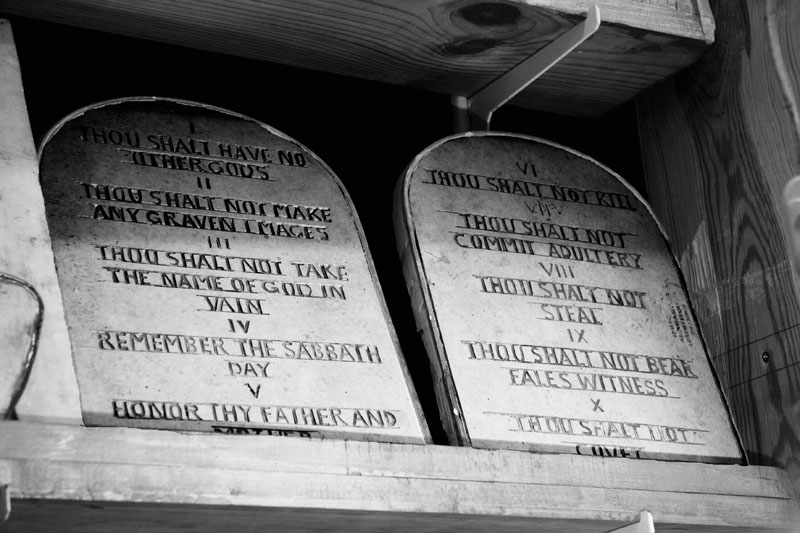 I
THOU SHALT HAVE NO
OTHER GODS
II
THOU SHALT NOT MAKE
ANY GRAVEN IMAGES
III
THOU SHALT NOT TAKE
THE NAME OF GOD IN
VAIN
IV
REMEMBER THE SABBATH
DAY
V
HONOR THY FATHER AND
MOTHER
VI
THOU SHALT NOT KILL
VII
THOU SHALT NOT
COMMIT ADULTERY
VIII
THOU SHALT NOT
STEAL
IX
THOU SHALT NOT BEAR
FALES WITNESS
X
THOU SHALT NOT
COVET